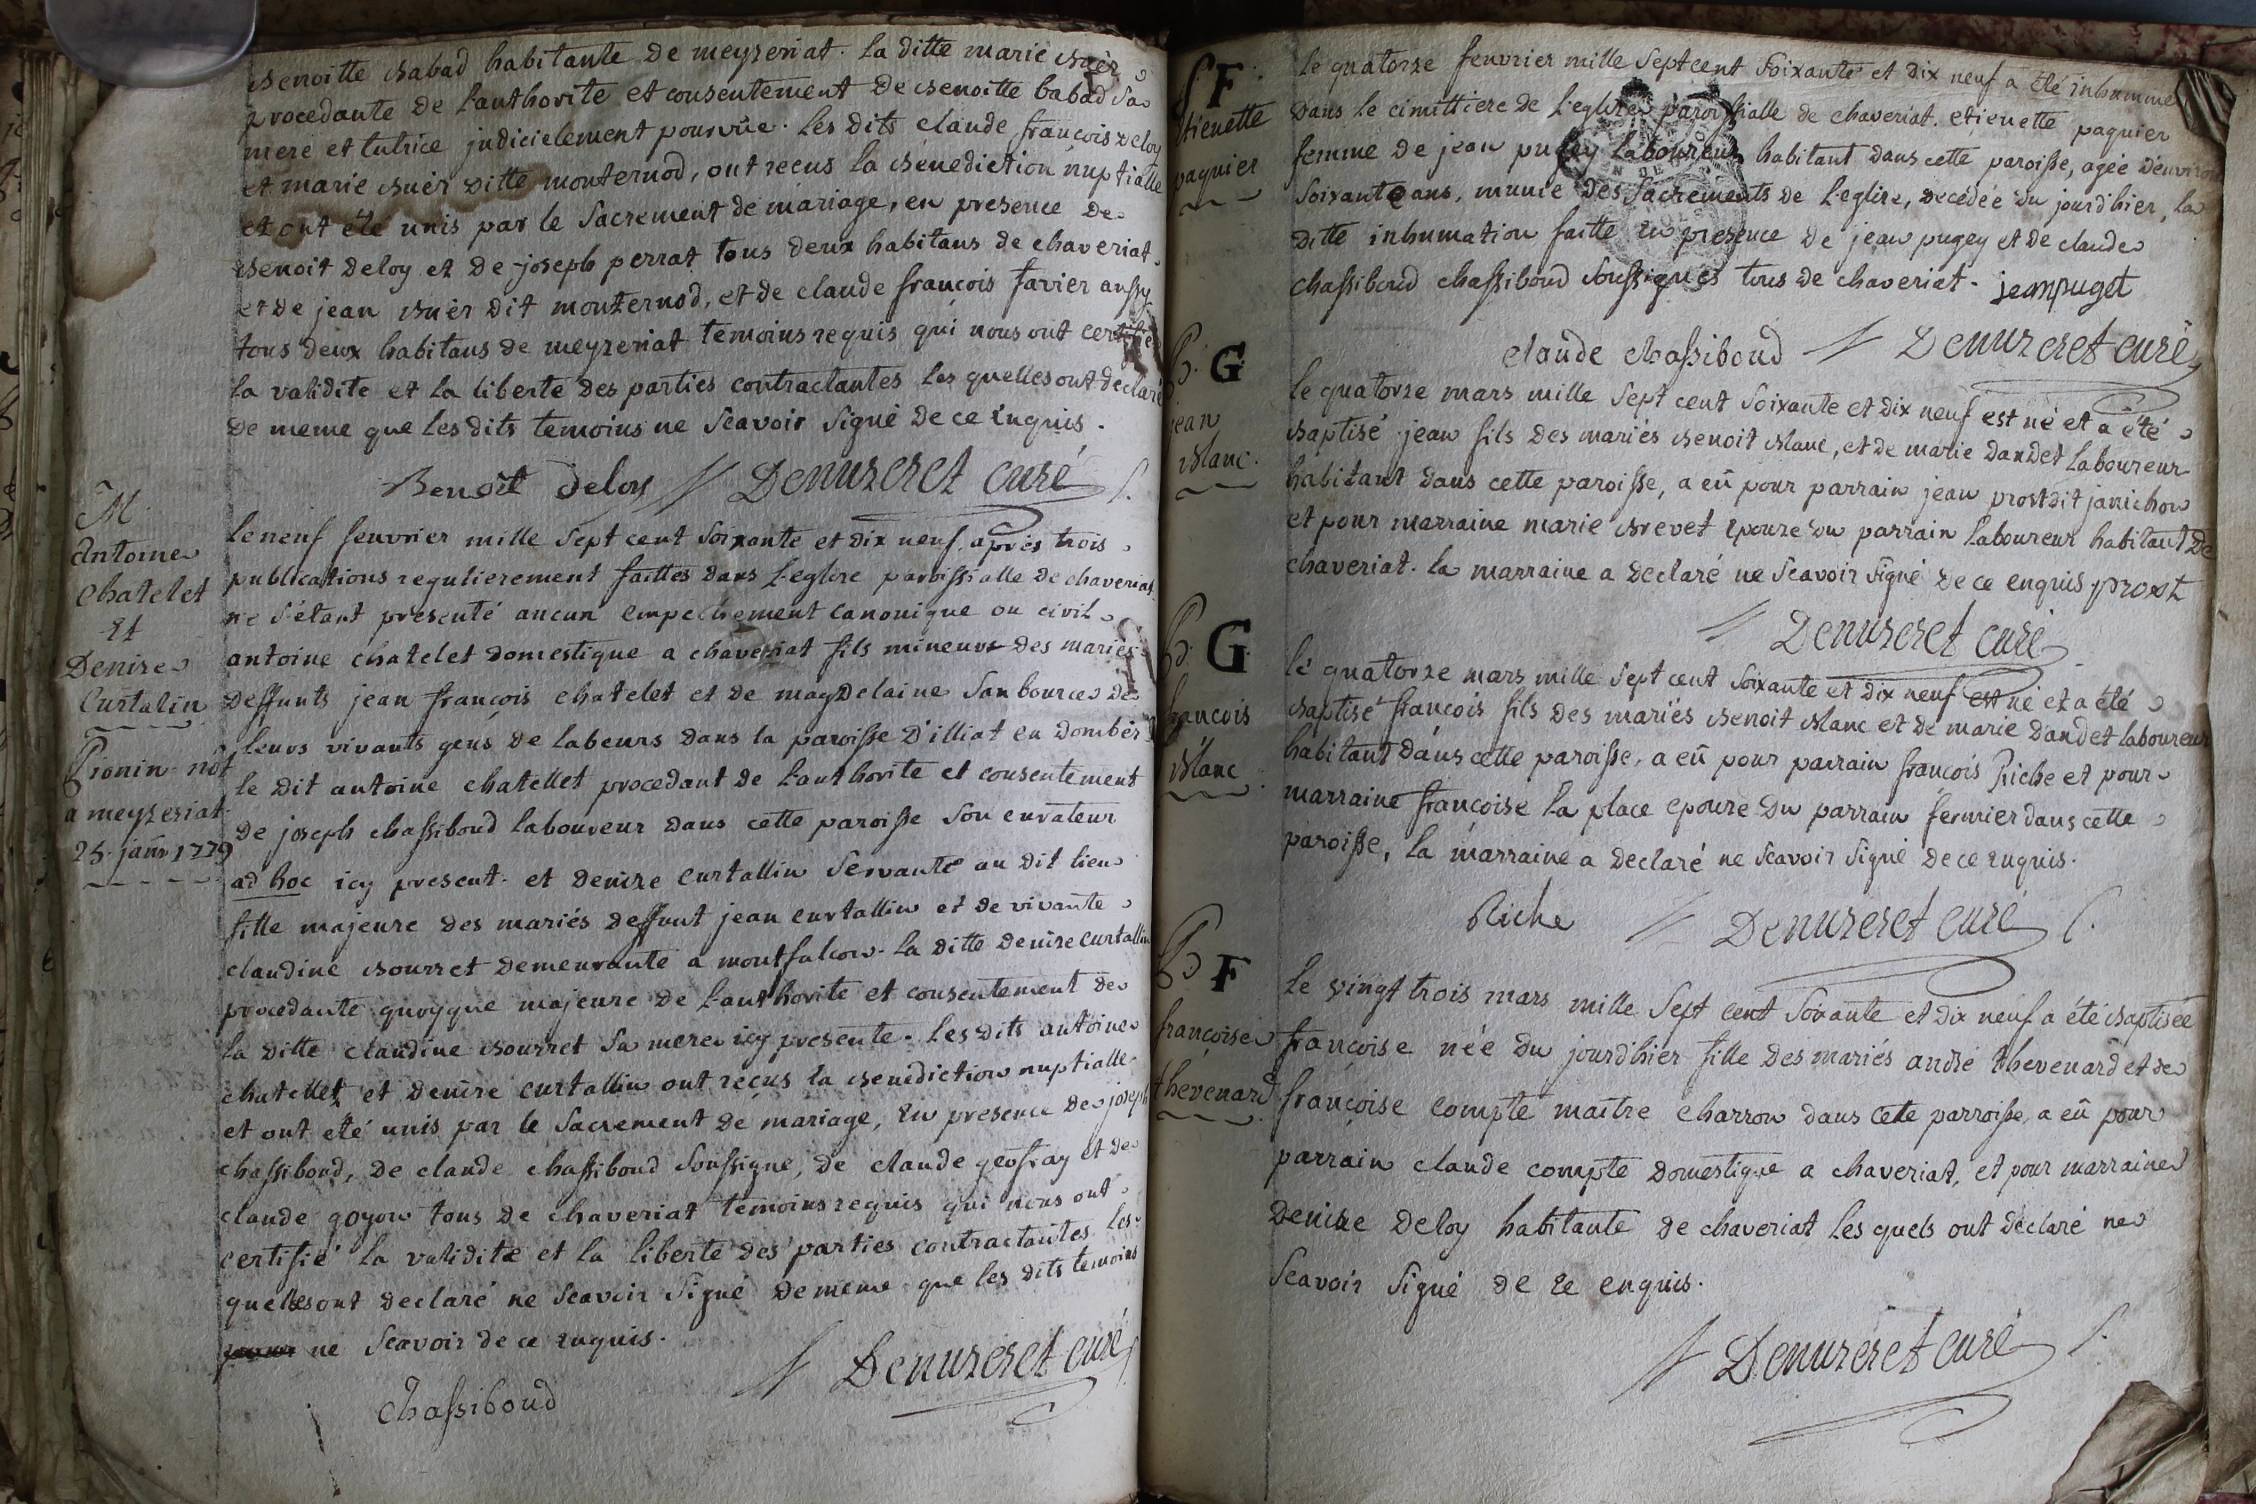 Benoitte Babad habitante de meyzeriat. la ditte marie Buèr
procedante de l'authorité et consentement de Benoitte babad sa
mere et tutrice judicielement pourvûe. les dits claude françois deloy
et marie Buèr ditte monternod, ont recus la Bénediction nuptialle
et ont été unis par le Sacrement de mariage, en presence de
Benoit deloy et de joseph perrat tous deux habitans de chaveriat.
et de jean Buèr dit monternod, et de claude françois favier aussy
tous deux habitans de meyzeriat temoins requis qui nous ont certifié
la validite et la liberté des parties contractantes les quelles ont declaré
de meme que les dits temoins ne Scavoir Signé de ce Enquis.
Benoit deloy Denuzeret curé
M.
Antoine
Chatelet
Et
Denize
Curtalin
Pionin not
a meyzeriat
25. janv 1779
le neuf feuvrier mille Sept cent Soixante et dix neuf. après trois
publications regulierement faittes dans l'eglize paroissialle de chaveriat
ne s'étant presenté aucun empechement canonique ou civil
antoine chatelet domestique a chaveriat fils mineur des mariés
deffunts jean françois chatelet et de magdelaine Sanbource de
leurs vivants gens de labeurs dans la paroisse d'illiat en dombes
le dit antoine chatellet procedant de l'authorité et consentement
de joseph chassiboud laboureur dans cette paroisse Son curateur
ad hoc icy present. et denize curtallin Servante au dit lieu
fille majeure des mariés deffunt jean curtallin et de vivante
claudine Bourret demeurante a montfalcon. la ditte denize curtallin
procedante quoyque majeure de l'authorité et consentement de
la ditte claudine Bourret Sa mere icy presente. les dits antoine
chatellet et denize curtallin ont recus la Benediction nuptialle
et ont été unis par le Sacrement de mariage, En presence de joseph
chassiboud, de claude chassiboud Soussigné, de claude geoffray et de
claude goyon tous de chaveriat temoins requis qui nous ont
certifié la validite et la liberté des parties contractantes les
quelles ont declaré ne Scavoir Signé de meme que les dits temoins
ne Scavoir de ce Enquis.
Chassiboud Denuzeret curé
S F
Etienette
paquier
le quatorze feuvrier mille Sept cent Soixante et dix neuf a été inhummé
dans le cimittiere de l'eglize paroissialle de chaveriat. etienette paquier
femme de jean pugey laboureur habitant dans cette paroisse, agée d'environ
Soixante ans, munie des Sacrements de l'eglize, decédée du jourd'hier, la
ditte inhumation faitte en presence de jean pugey et de claude
chassiboud chassiboud Soussignés tous de chaveriat. jean puget
claude chassiboud Denuzeret curé
B. G
jean
Blanc.
le quatorze mars mille Sept cent Soixante et dix neuf est né et a été
Baptisé jean fils des mariés Benoit Blanc, et de marie dandet laboureur
habitant dans cette paroisse, a eû pour parrain jean prost dit janichon
et pour marraine marie Brevet Epouze du parrain laboureur habitant de
chaveriat. la marraine a declaré ne Scavoir Signé de ce enquis prost
Denuzeret curé
B. G
françois
Blanc
le quatorze mars mille Sept cent Soixante et dix neuf est né et a été
Baptisé françois fils des mariés Benoit Blanc et de marie dandet laboureur
habitant dans cette paroisse, a eû pour parrain françois Riche et pour
marraine françoise la place epouze du parrain fermier dans cette
paroisse, la marraine a declaré ne Scavoir Signé de ce Enquis.
Riche Denuzeret curé
B F
françoise
thevenard
le vingt trois mars mille Sept cent Soixante et dix neuf a été Baptisée
françoise née du jourd'hier fille des mariés andré thevenard et de
françoise compte maître charron dans cette parroisse, a eû pour
parrain claude compte domestique a chaveriat, et pour marraine
denize deloy habitante de chaveriat les quels ont declaré ne
Scavoir Signé de ce enquis.
Denuzeret curé